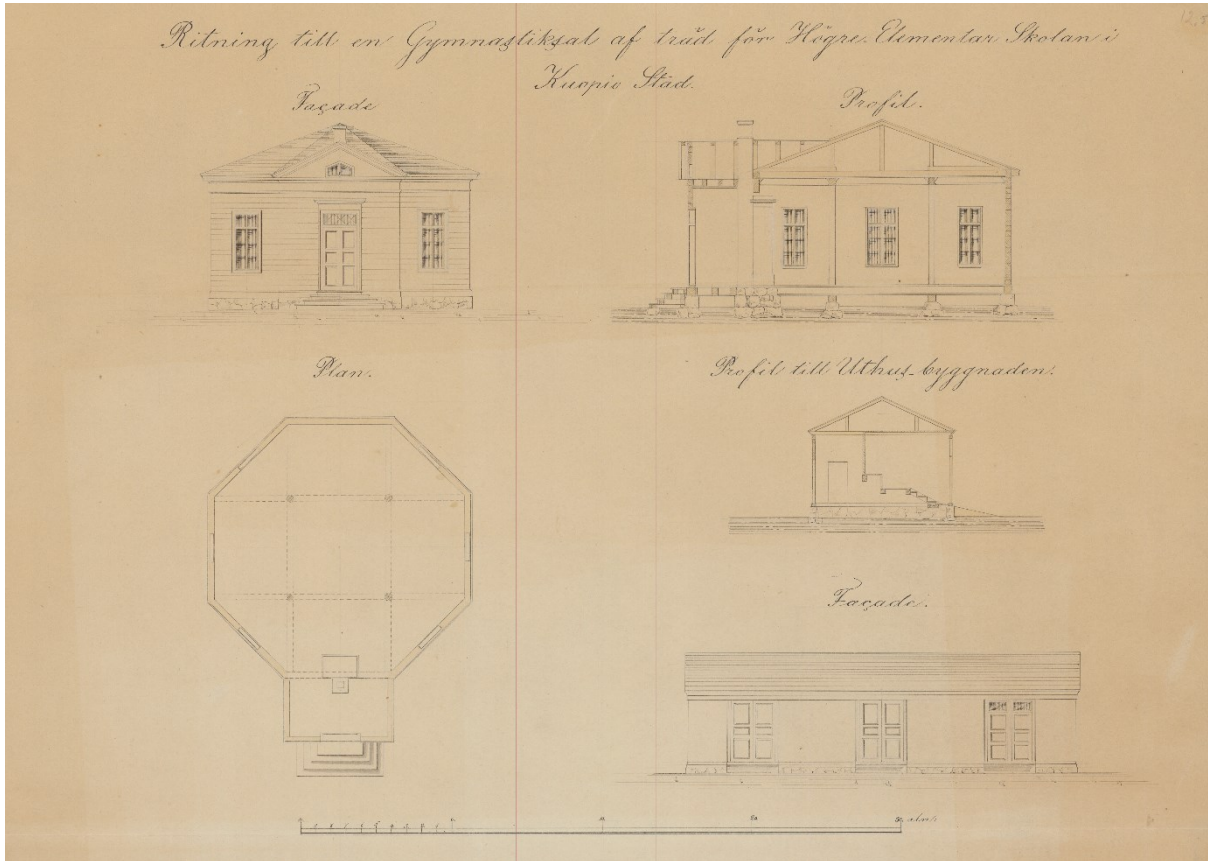 Ritning till en Gymnastiksal af träd för Högre Elementar Skolan i
Kuopio Stad.
Façade
Profil.
Plan.
Profil till Uthus-byggnaden.
Façade.